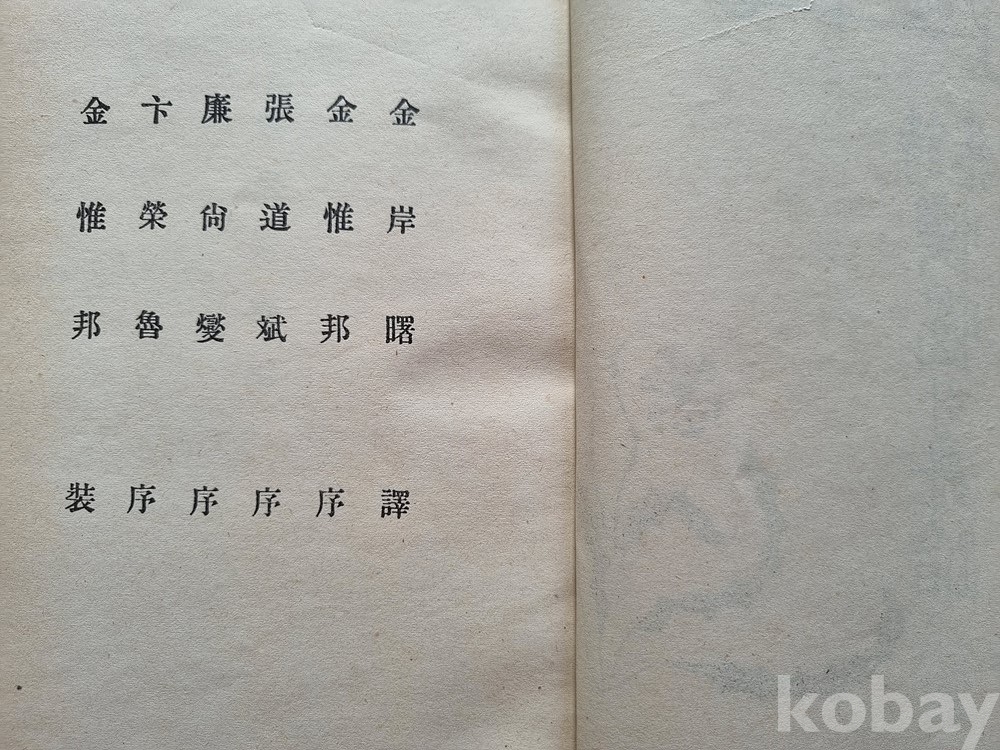 金岸曙 譯
金惟邦 序
張道斌 序
廉尙燮 序
卞榮魯 序
金惟邦 裝
kobay